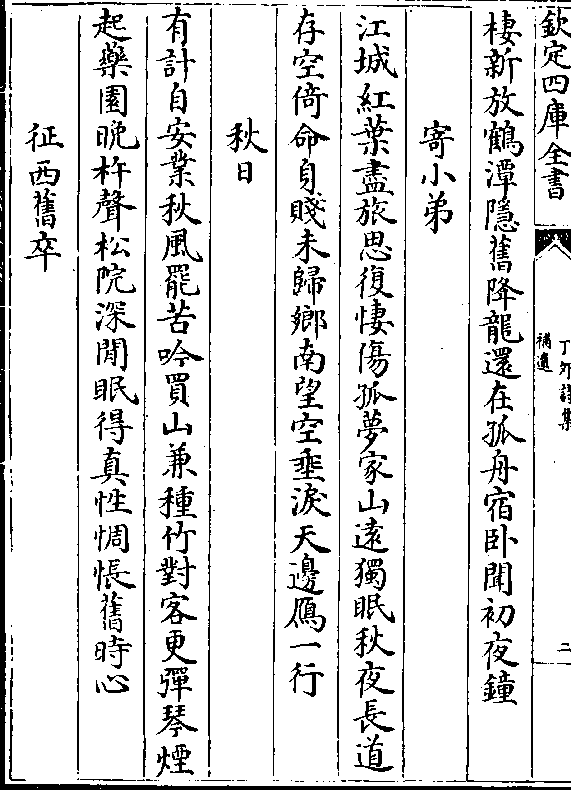 欽定四庫全書
丁卯詩集
補遺
二
棲新放鶴潭隱舊降龍還在孤舟宿卧聞初夜鐘
寄小弟
江城紅葉盡旅思復悽傷孤夢家山遠獨眠秋夜長道
存空倚命身賤未歸鄉南望空垂淚天邊鴈一行
秋日
有計自安業秋風罷苦吟買山兼種竹對客更彈琴煙
起藥園晚杵聲松院深閒眠得真性惆悵舊時心
征西舊卒